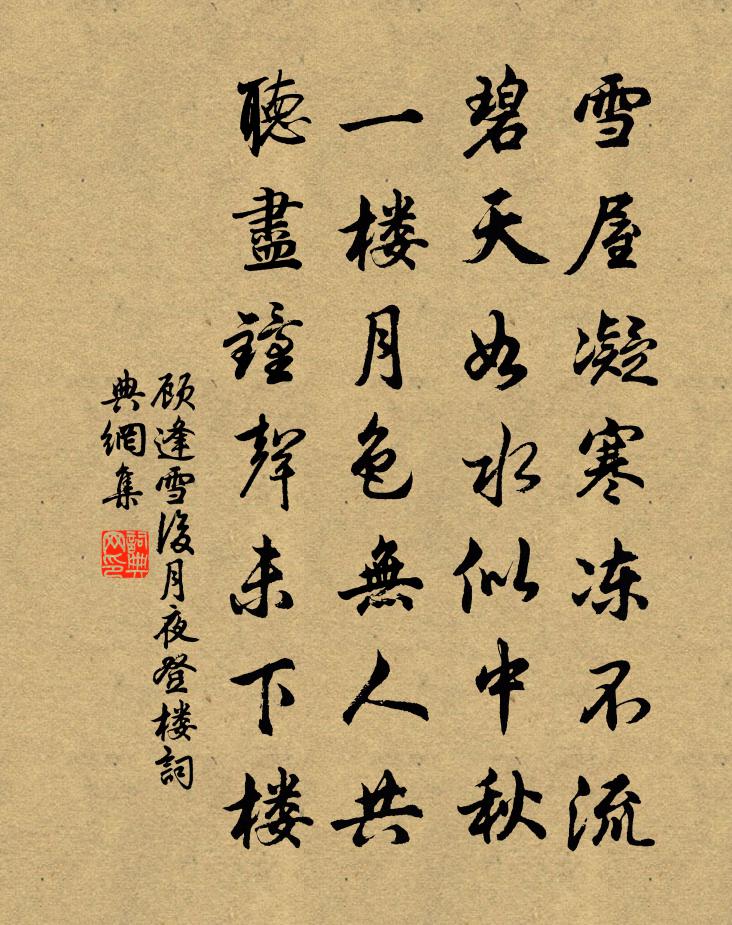 雪屋凝寒冻不流
碧天如水似中秋
一楼月色無人共
聽盡鐘聲未下楼
顾逢雪後月夜登楼詞
典網集
詞典
网印